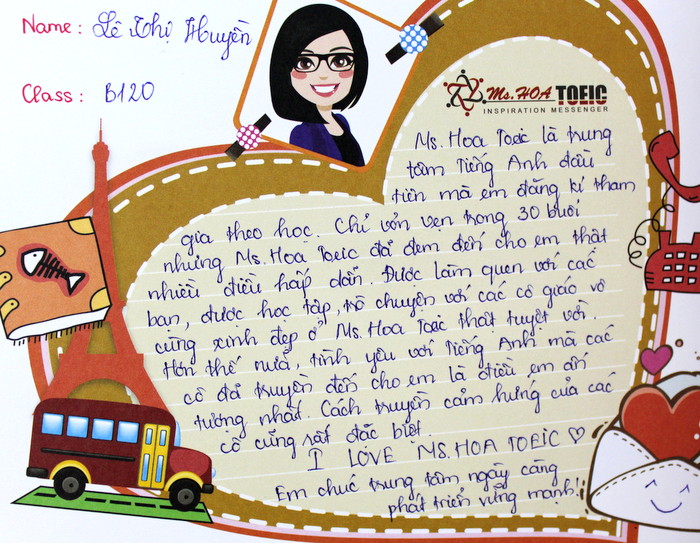 Name: Lê Thị Huyền
Class: B120
Ms.HOA TOEIC
INSPIRATION MESSENGER
Ms. Hoa Toeic là trung
tâm Tiếng Anh đầu
tiên mà em đăng kí tham
gia theo học. Chỉ vỏn vẹn trong 30 buổi
nhưng Ms. Hoa Toeic đã đem đến cho em thật
nhiều điều hấp dẫn. Được làm quen với các
bạn, được học tập, trò chuyện với các cô giáo vô
cùng xinh đẹp ở Ms. Hoa Toeic thật tuyệt vời.
Hơn thế nữa, tình yêu với Tiếng Anh mà các
cô đã truyền đến cho em là điều em ấn
tượng nhất. Cách truyền cảm hứng của các
cô cũng rất đặc biệt.
I LOVE MS. HOA TOEIC ♡
Em chúc trung tâm ngày càng
phát triển vững mạnh!